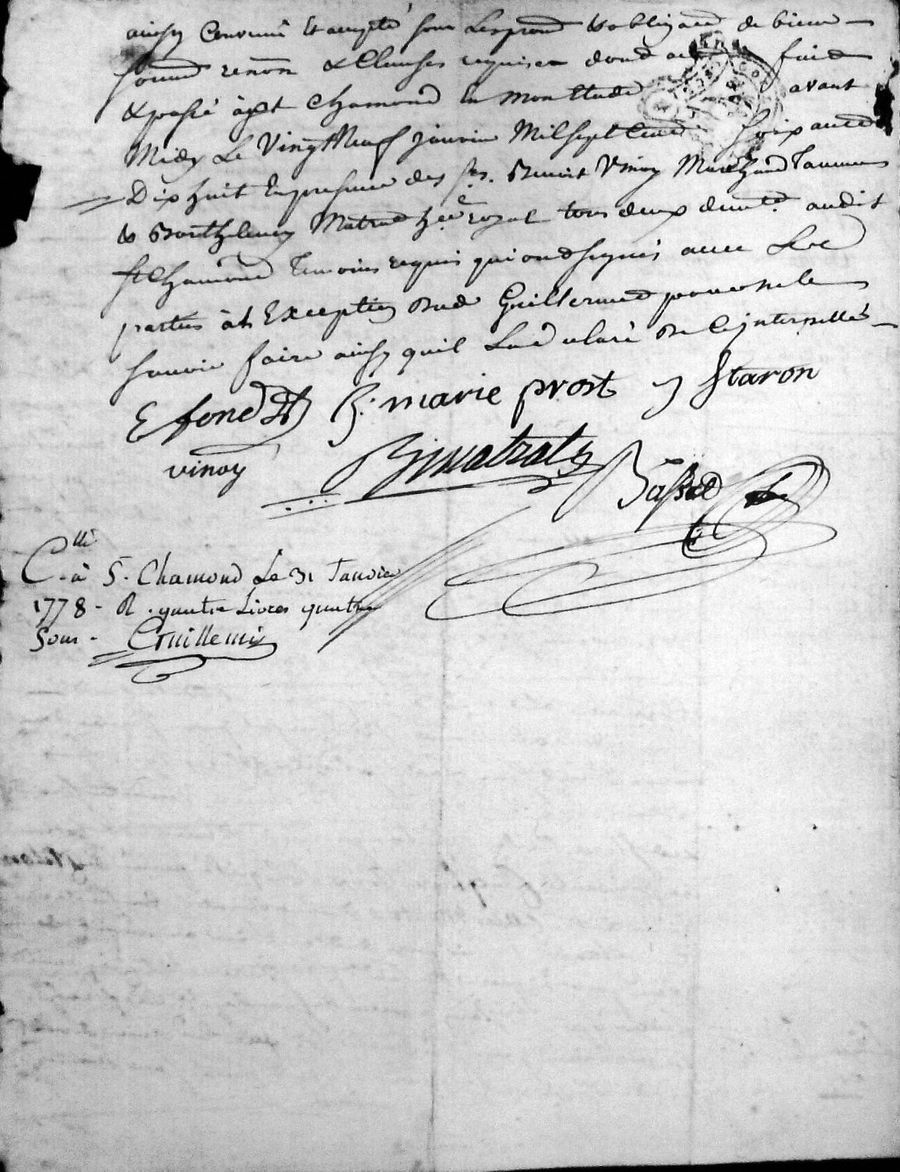 ainsy Convenu & accepté sous Les prom & obligaõn de biens
soum renõn & Clauses requises dont acte fait
& passé à St Chamond en mon Etude avant
Midy Le Vingt Neuf Janvier Mil sept Cent soixante
Dix huit En presence des Srs. Benoit Vinoy Marchand Tanneur
& Barthelemy Matrat her royal tous deux demts audit
St Chamond Temoins requis qui ont signés avec Les
parties à L'Exception dud Guillermet pour ne le
scavoir faire ainsy quil L'a declaré De Ce interpellé
E fond B. marie prost J Staron
vinoy B Matrat Basset
C.lé à S. Chamond Le 31 Janvier
1778 - R. quatre Livres quatre
Sous -